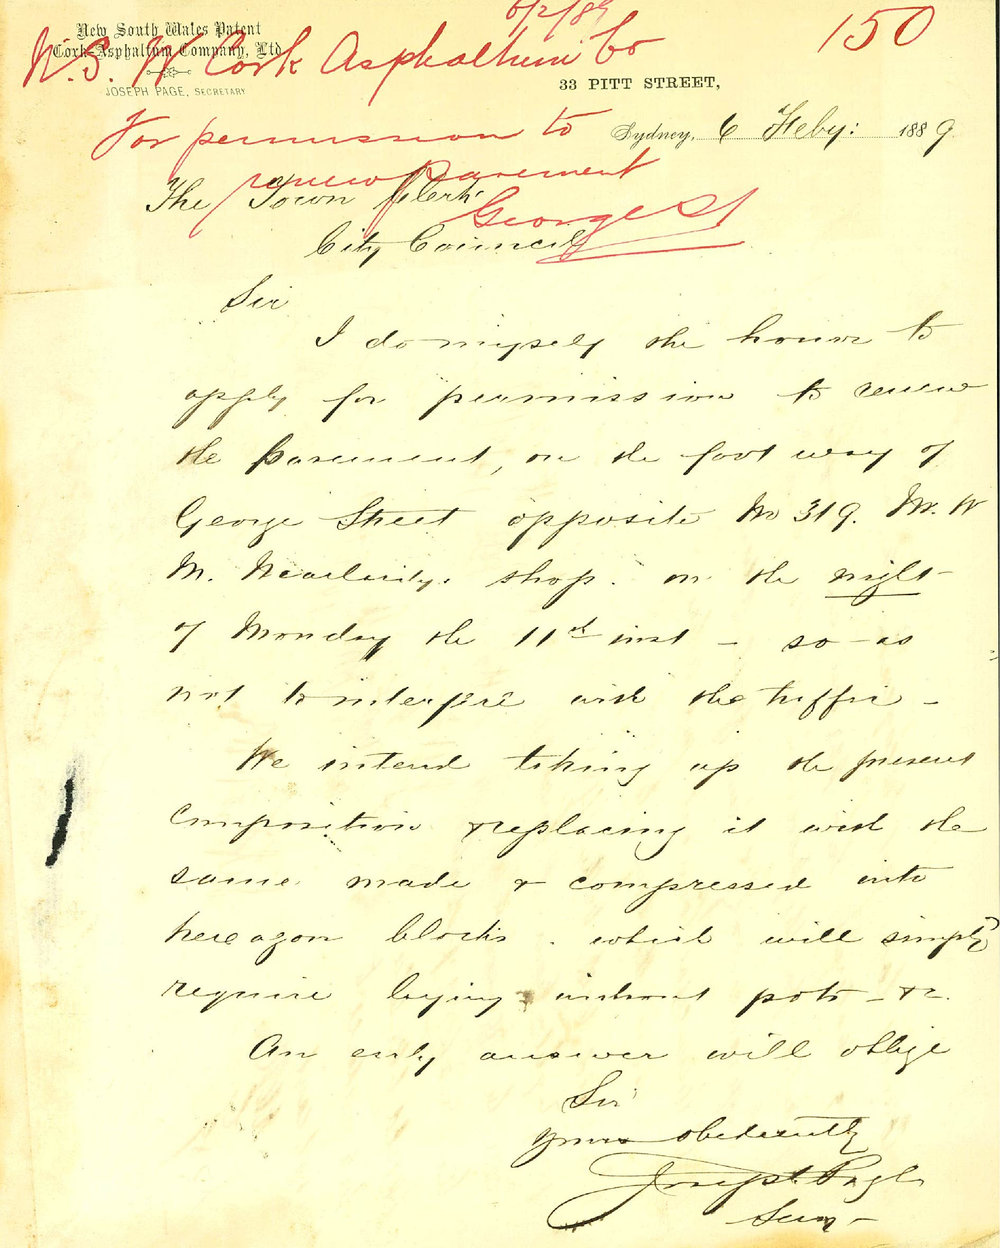 6/2/89
150
New South Wales Patent
Cork-Asphaltum Company, Ltd
JOSEPH PAGE, SECRETARY
N.S.W Cork Asphaltum Co
33 PITT STREET,
For permission to
Sydney, 6 Feby: 1889
renew Pavement
The Town Clerk
George St
City Council
Sir
I do myself the honor to
apply for permission to renew
the pavement, on the foot way of
George Street opposite No 319. Mr. W
M. shop. on the night
of Monday the 11th inst - so as
not to interfere with the traffic -
We intend taking up the present
composition & replacing it with the
same made & compressed into
hexagon blocks. which will simply
require laying without pots - &c.
An early answer will oblige
Sir
Yours obediently
Joseph Page
Secry -